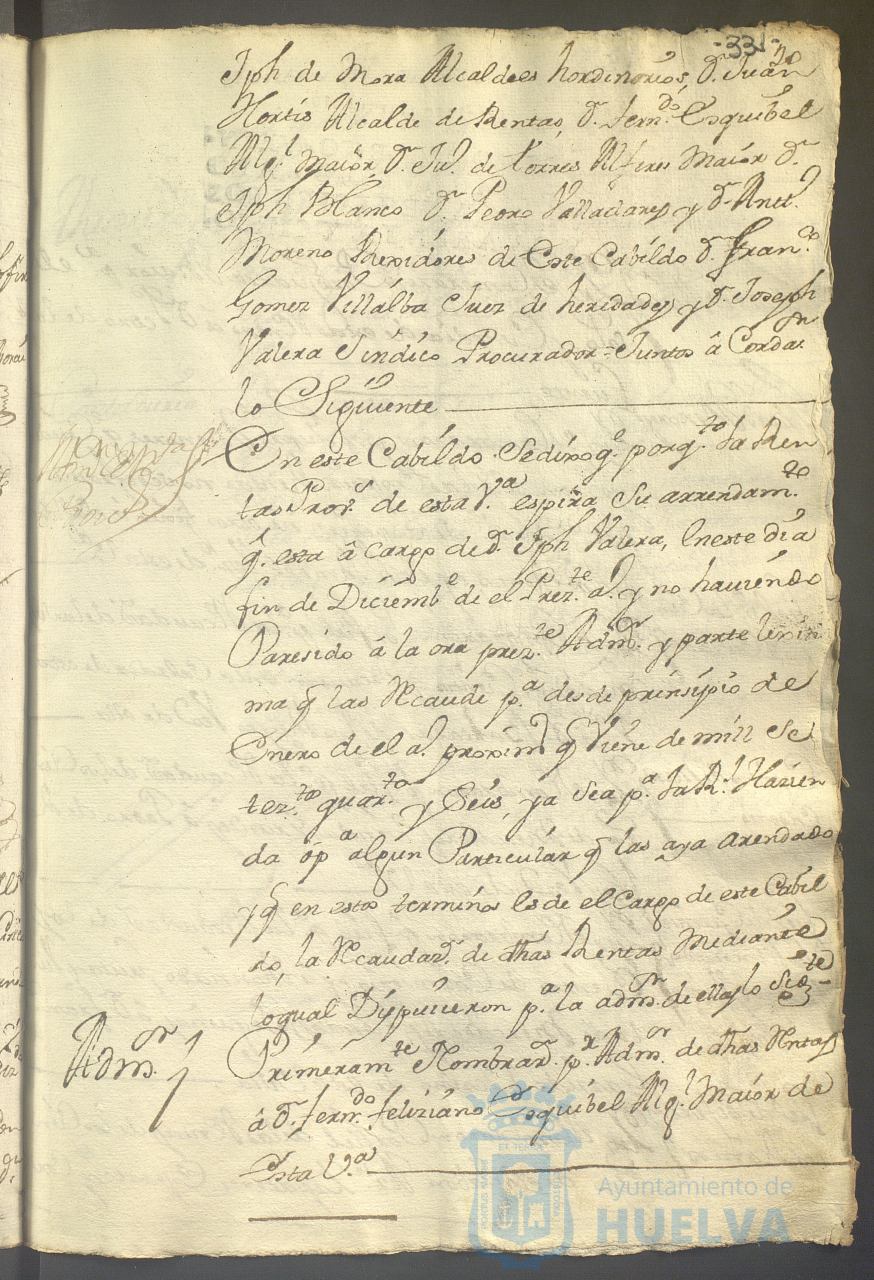 -331-
Jph de Mora Alcaldes hordinarios, Dn. Juan
Hortis Alcalde de Rentas, Dn. Ferndo. Esquibel
Algl. Maior Dn. Jul. de Torres Alferes Maior Dn.
Jph Blanco Dn. Pedro Valladares y Dn. Antto.
Moreno Rexidores de Este Cabildo Dn. Franco.
Gomez Villalba Juez de heridades y Dn. Joseph
Valera Sindico Procurador = Juntos â Cordaron
lo Siguiente
En este Cabildo Sedixo qe. porqto. las Ren
tas Prov.s de esta Va. espira Su arrendamto.
q. esta â cargo de Dn. Jph Valera, Eneste dia
fin de Diciembe. de el Prezte. a. y no haviendo
Paresido â la ora prezte. Admor. y parte lexiti
ma q las Recaude pa. desde prinsipio de
Enero de el a. proximo q Viene de mill Se
tezto. quarta. y Seis, ya Sea pa. la Rl. Hazien
da ô pa algun Particular q las aya arendado
y q en estos terminos Es de el Cargo de este Cabil
do, la Recaudazn. de dhas Rentas Mediante
loqual Dispusieron pa. la admon. de ellas lo Sigte.
Admor.
Primeramte. Nombraron pr. Admor. de dhas Rentas
â Dn. Ferndo. Feliziano Esquibel Algl. Maior de
Esta Va.
Ayuntamiento de
HUELVA